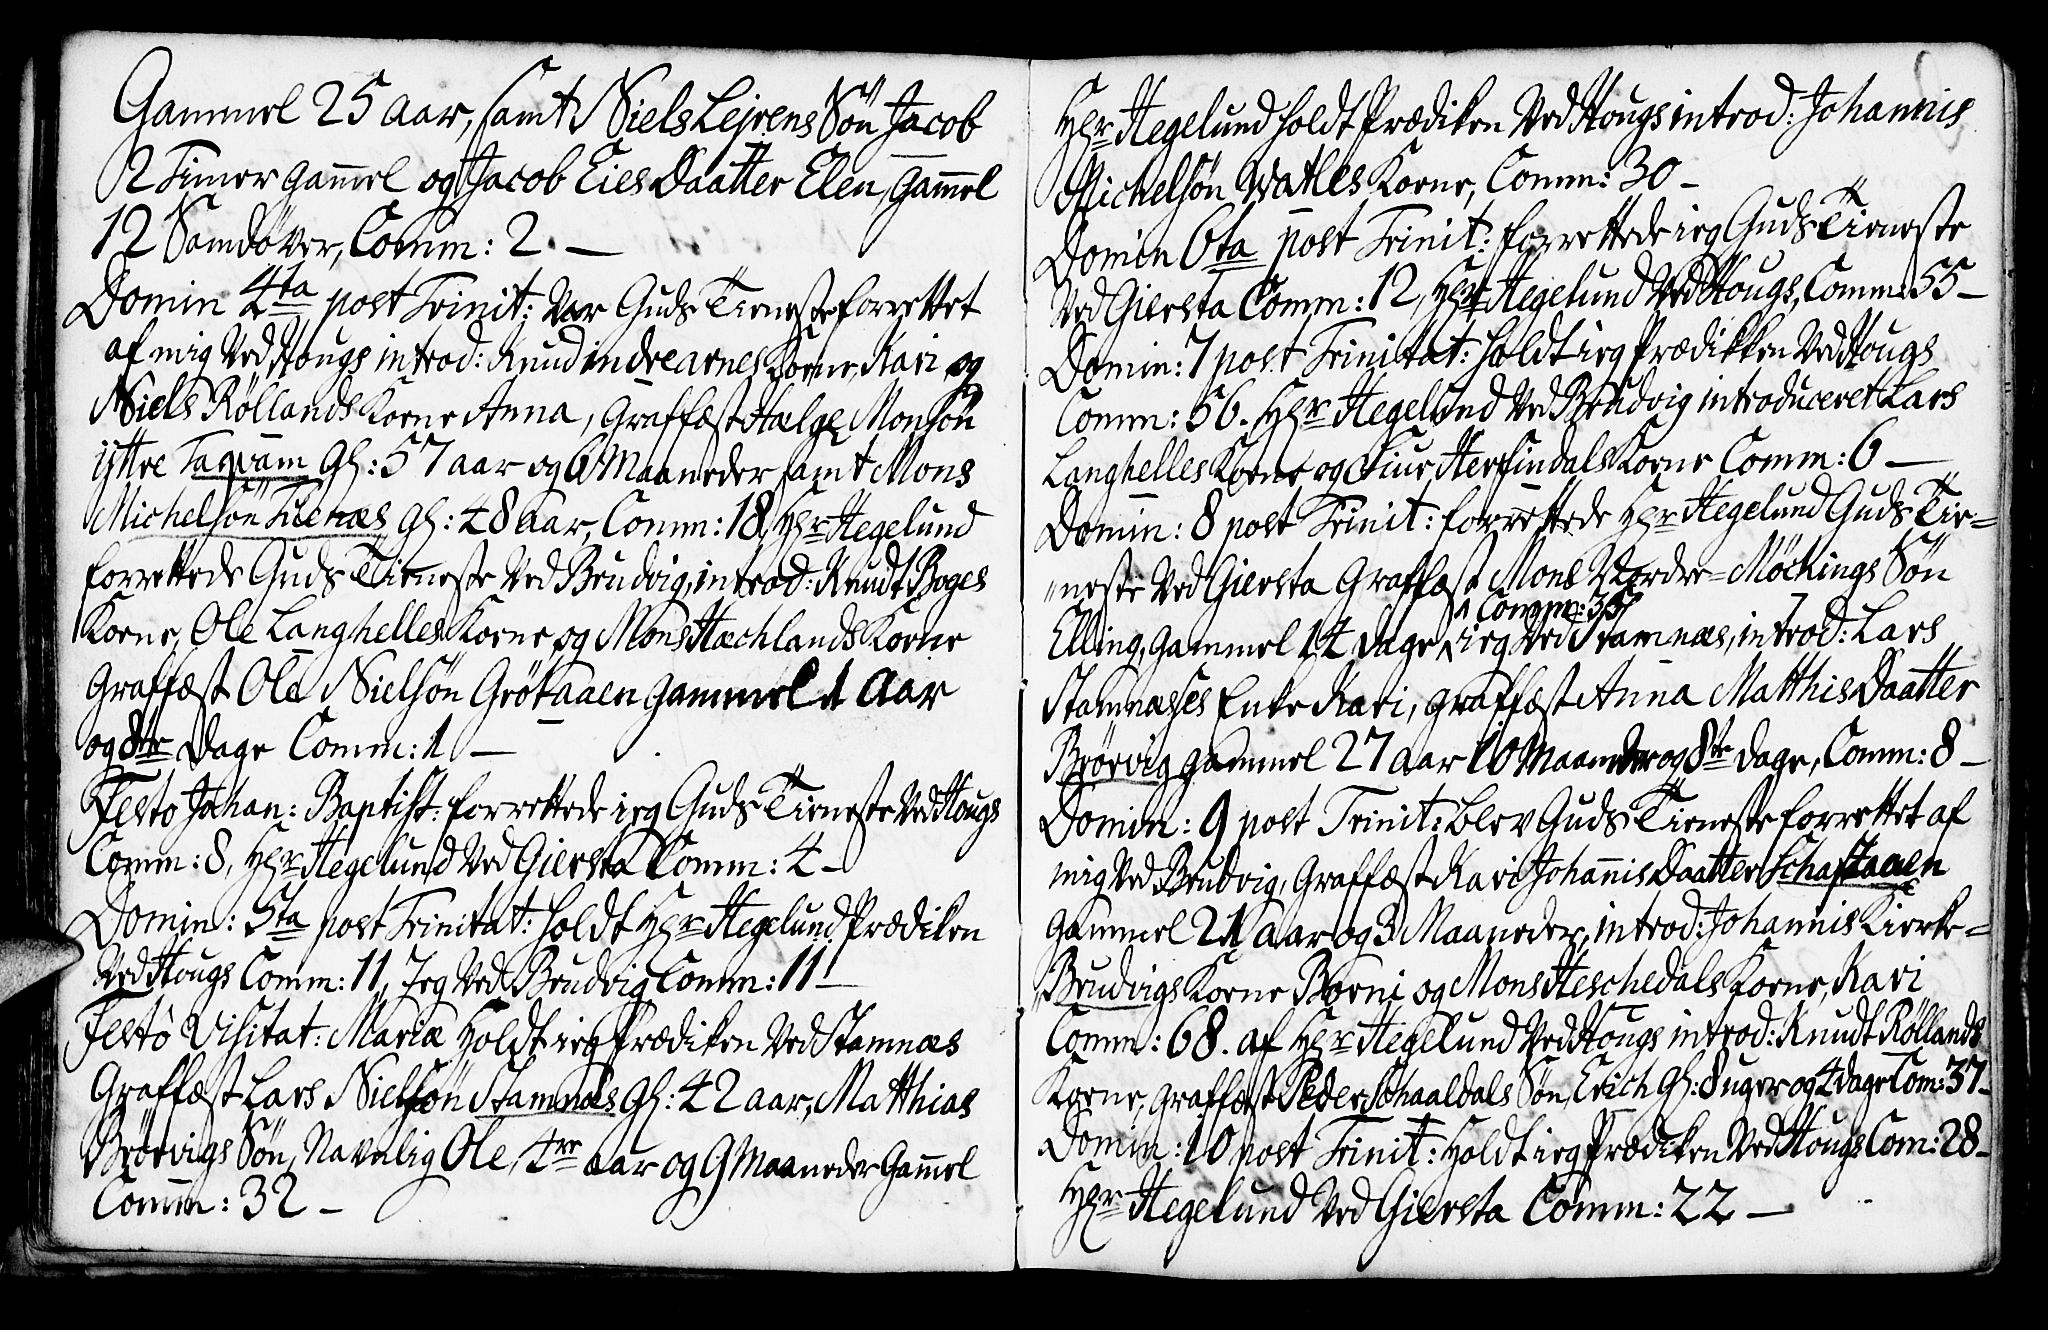 Gammel 25 aar, samt Niels Lejrens Sön Jacob
2 Timer gam̄el og Jacob Eies Daatter Elen, gam̄el
12 Samdöver, Comm: 2. —
Domin 4ta post Trinit: Var Guds Tieneste forrettet
af mig Ved Hougs introd: Knud indre arnes Kone, Kari og
Niels Röllands Kone Anna, Graffæst Hælge Monsön
ÿttre Taqvam Gl: 57 aar og 6 Maaneder samt Mons
Michelsön Tuenæs, Gl: 48 aar, Comm: 18, Hr Hegelund
forrettede Guds Tieneste Ved Brudvig, introd: Knudt Boges
Kone, Ole Langhelles Kone og Mons Hæchlands Kone
Graffæst Ole Nielsön Grötaaen gammel 1 aar
og 8te Dage Comm: 1 —
Festo Johan: Baptist: forrettede ieg Guds Tieneste Ved Hougs
Comm: 8, Hr Hegelund Ved Giersta Comm: 4 —
Domin: 5ta post Trinitat: holdt Hr Hegelund Prædiken
Ved Hougs Comm: 11, Jeg Ved Brudvig Comm: 11 —
Festo Visitat: Mariæ Holdt ieg Prædiken Ved Stamnæs
Graffæst Lars Nielsön Stamnæs Gl: 42 aar, Matthias
Brörvigs Sön, Navnlig Ole, 4re aar og 9 Maaneder Gam̄el
Comm: 32 —
Hr Hegelund holdt Prædiken Ved Hougs introd: Johannis
Michelsön Watles Kone, Comm: 30 —
Domin 6ta post Trinit: forrettede ieg Guds Tieneste
Ved Giersta Comm: 12, Hr Hegelund Ved Hougs, Comm: 55 —
Domin: 7 post Trinitat: holdt ieg Prædikken Ved Hougs
Comm: 56. Hr Hegelund Ved Brudvig introduceret Lars
Langhelles Kone og Siur Herfindals Kone Comm: 6 —
Domin: 8 post Trinit: forrettede Hr Hegelund Guds Tie=
"neste Ved Giersta Graffæst Mons Nordre=Möckings Sön
Comm: 35
Elling, gammel 14 dage, ieg Ved Stamnæs, introd: Lars
Stamnæses Enke Kari, graffæst Anna Matthis Daatter
Brörvig gammel 27 aar 10 Maaneder og 8te dage, Comm: 8 —
Domin: 9 post Trinit: blev Guds Tieneste forrettet af
mig Ved Brudvig, Graffæst Kari Johan̄is Daatter Schaftaaen
gammel 21 aar og 3 Maaneder, introd: Johannis Kierke=
"Brudvigs Kone Borni og Mons Heschedals Kone, Kari
Comm: 68. af Hr Hegelund Ved Hougs introd: Knudt Röllands
Kone, graffæst Peder Schaaldals Sön, Erich Gl: 8 uger og 4 dage Com: 37 —
Domin: 10 post Trinit: Holdt ieg Prædiken Ved Hougs Com: 28 —
Hr Hegelund Ved Giersta Comm: 22 —